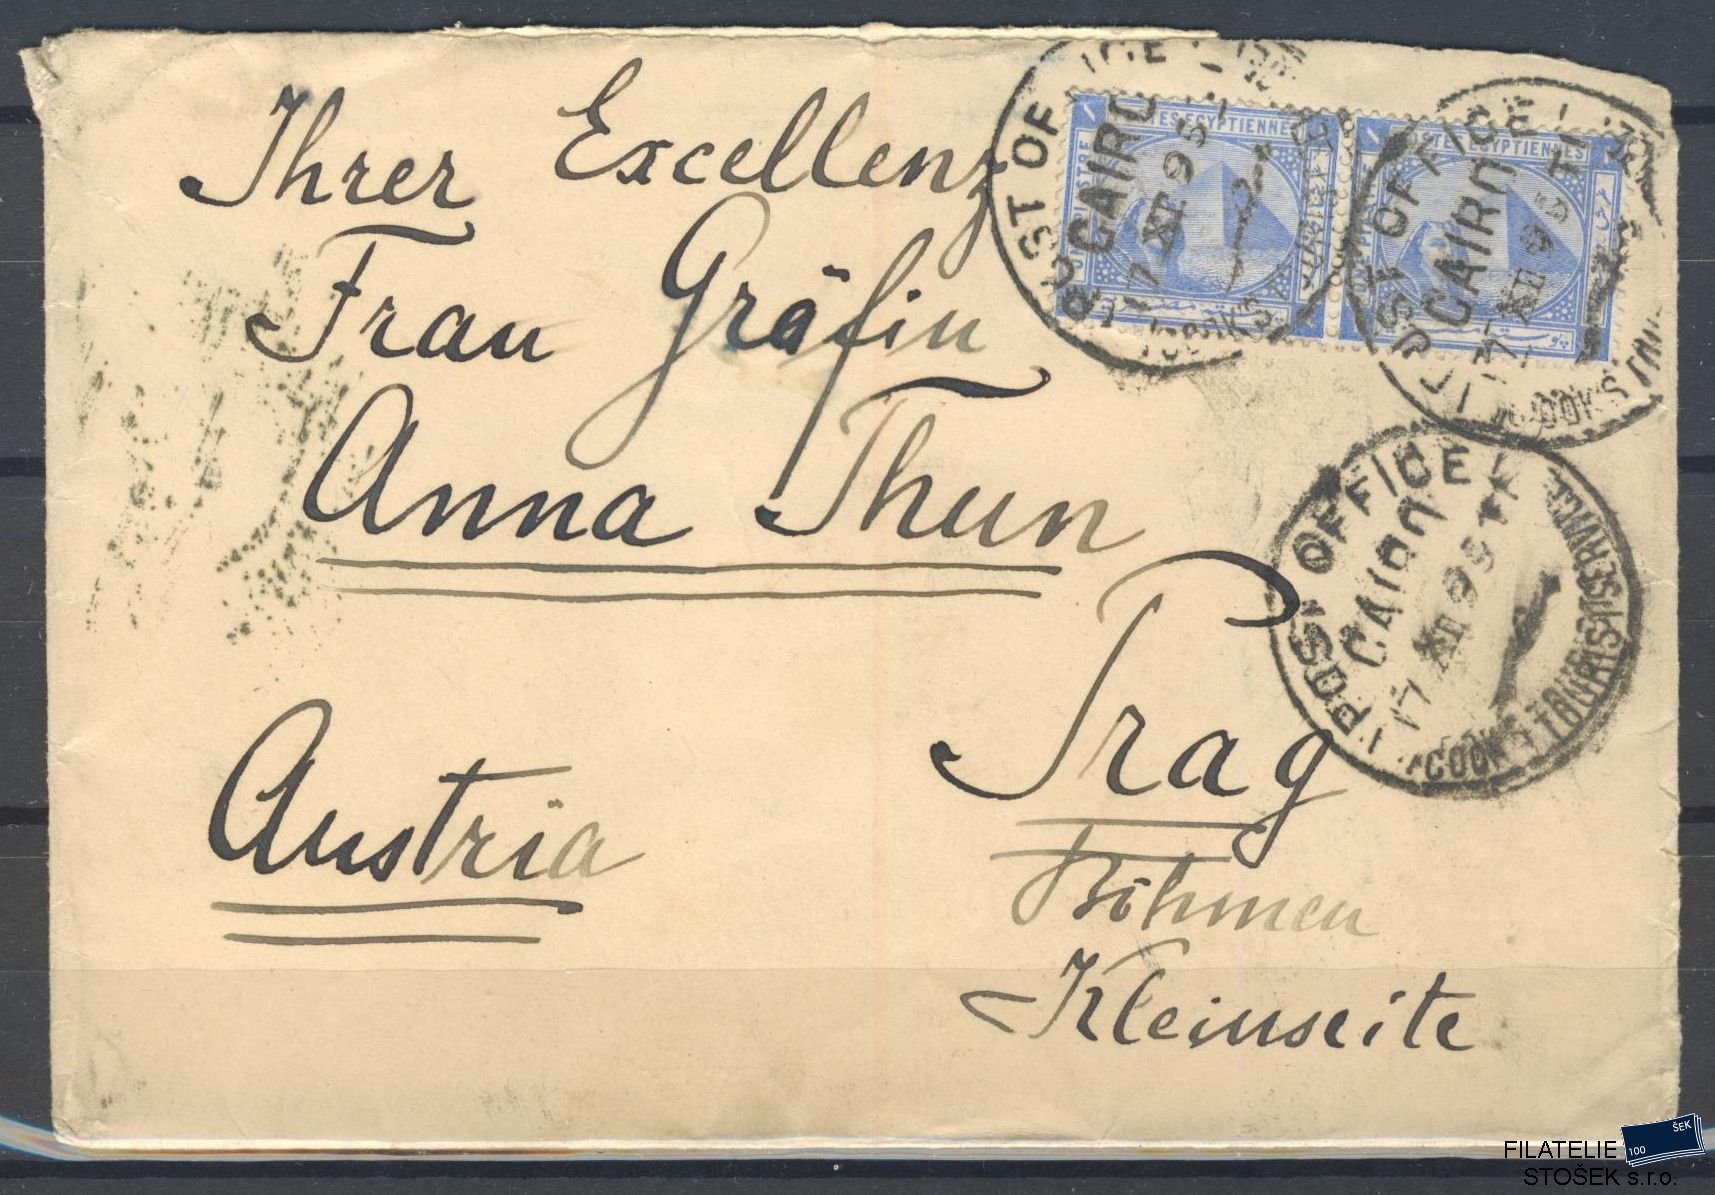 Ihrer Excellenz
Frau Gräfin
Anna Thun
Prag
Böhmen
Kleinseite
Austria
POST OFFICE
CAIRO
17 XII 95
POSTES EGYPTIENNES
POST OFFICE
CAIRO
17 XII 95
POSTES EGYPTIENNES
POST OFFICE
CAIRO
17 XII 95
COOK'S TOURIST SERVICE
FILATELIE
STOŠEK s.r.o.
100
ŠEK